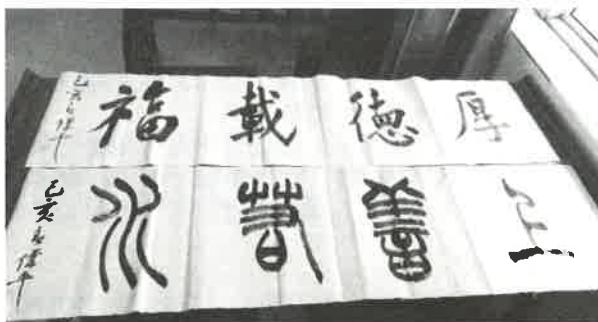 厚德載福
己亥
上善若水
己亥